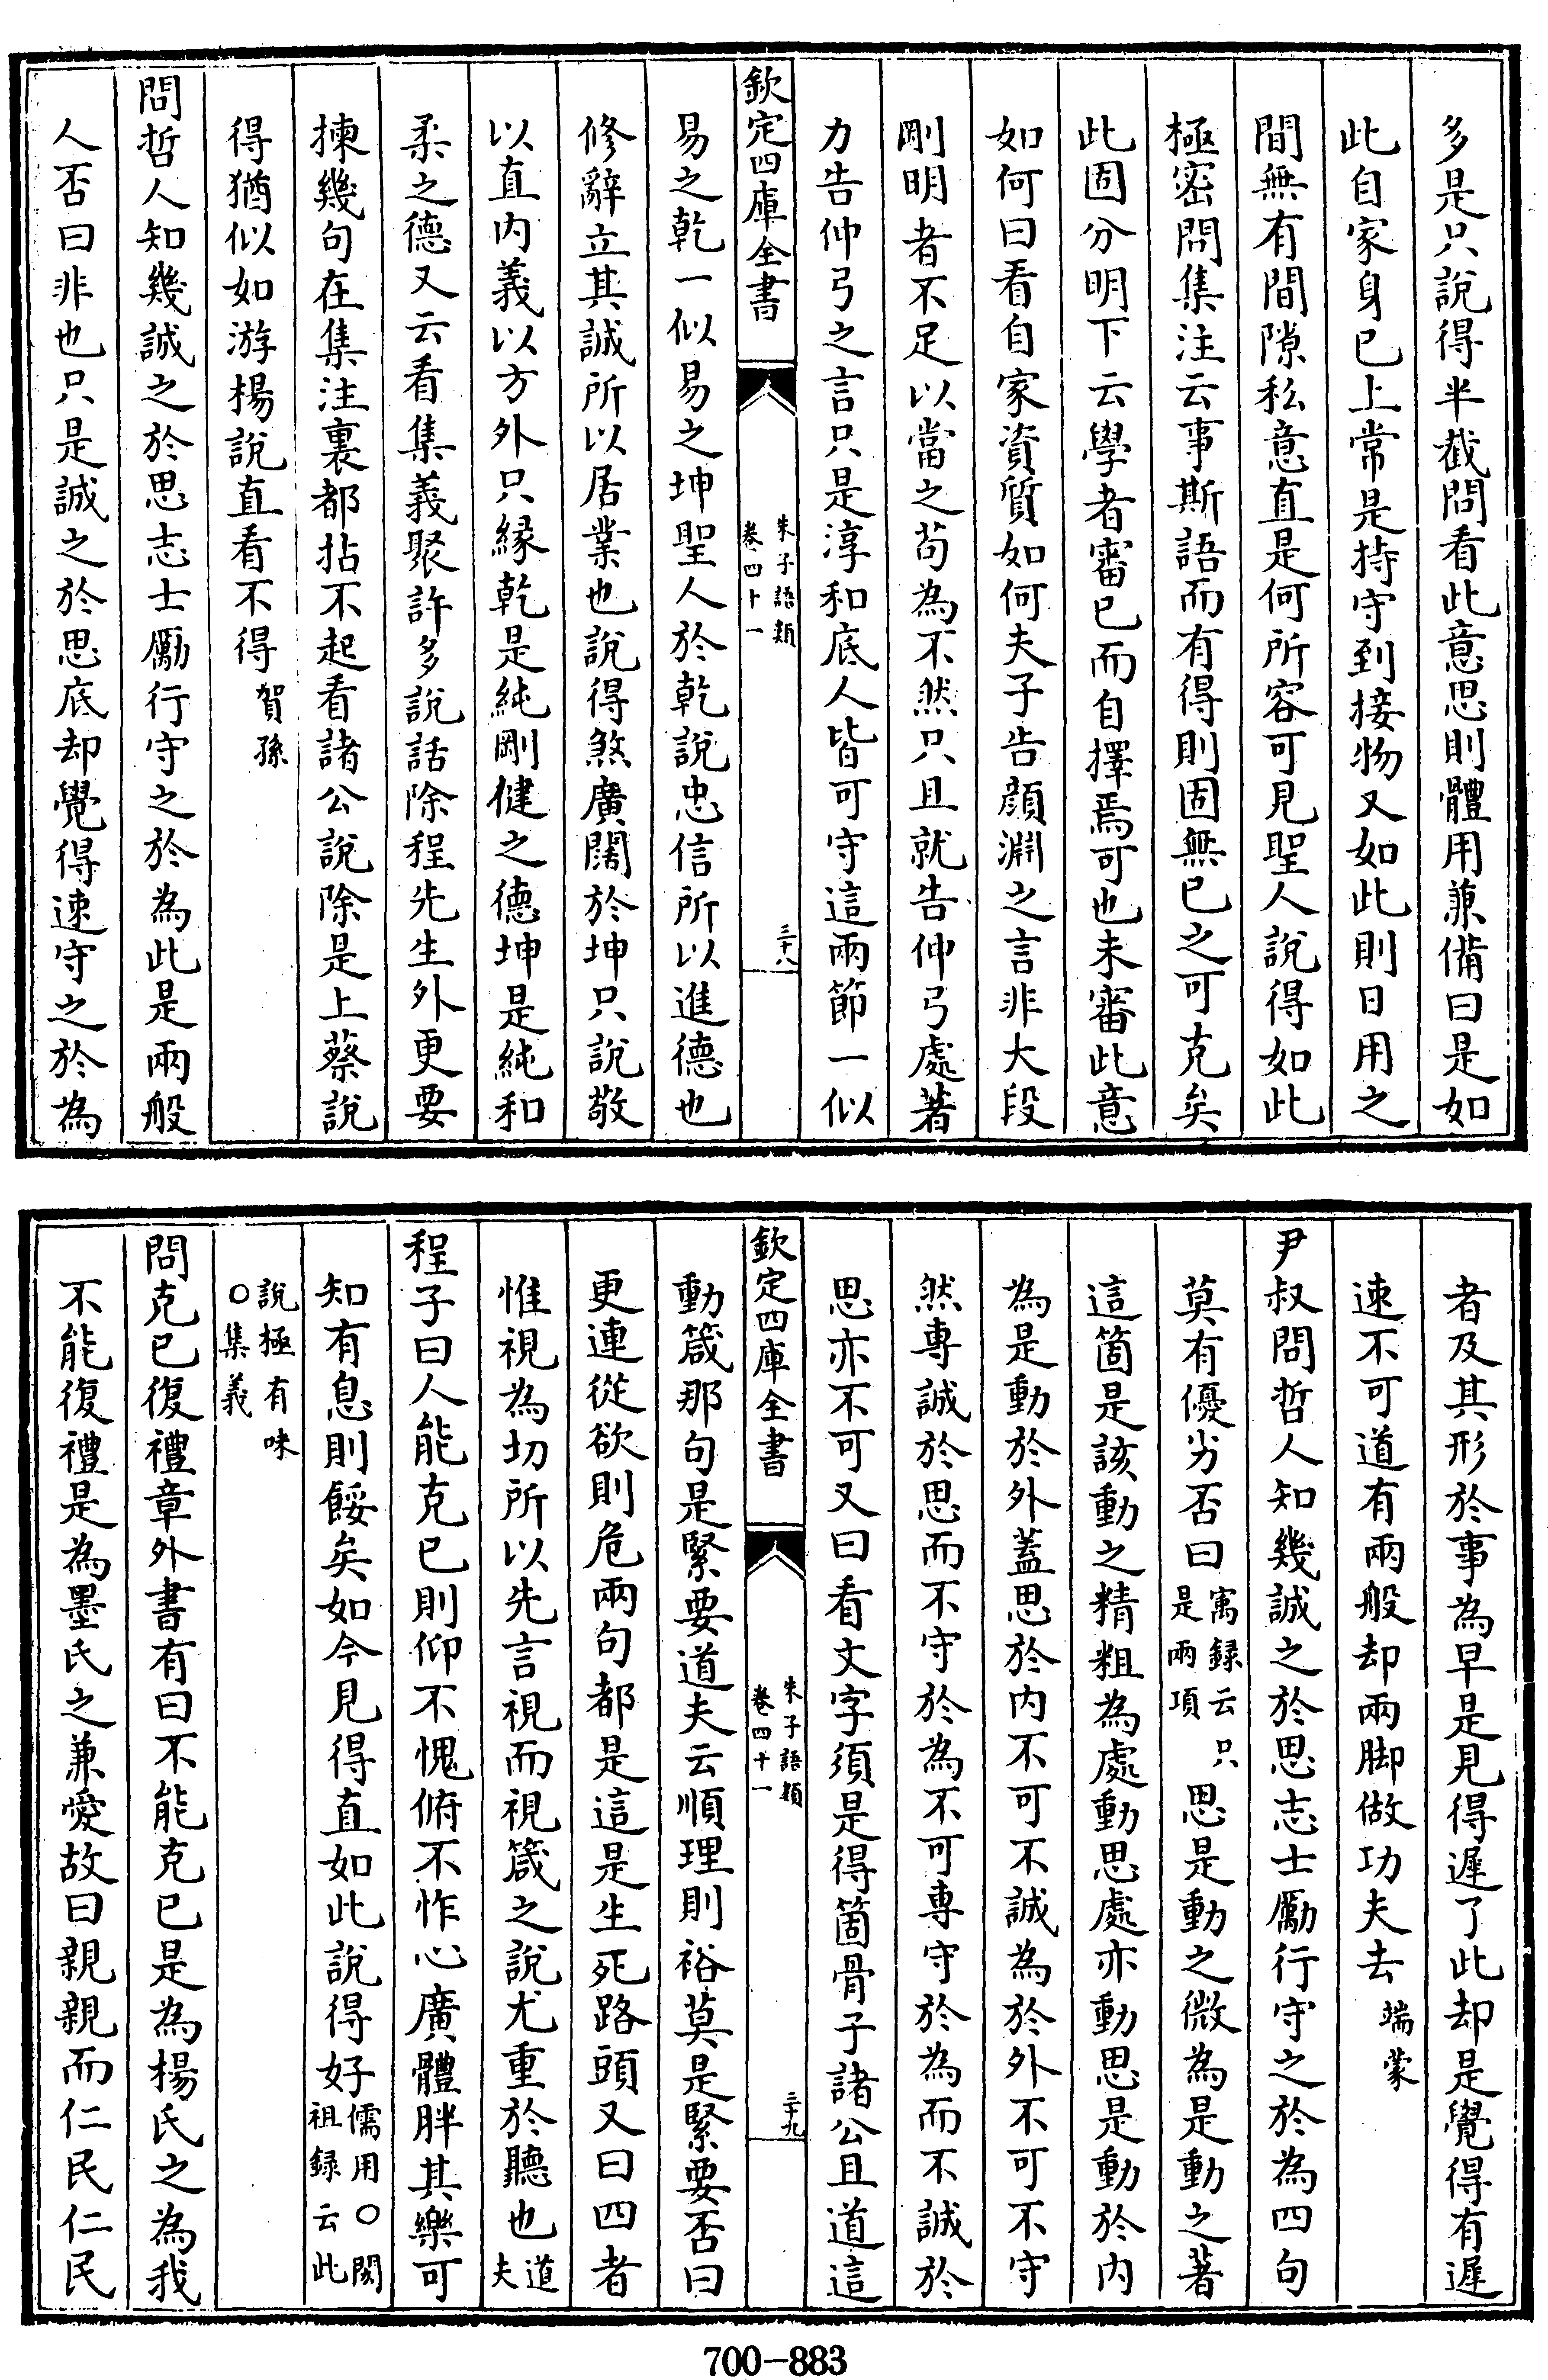 多是只說得半截問看此意思則體用兼備曰是如
此自家身已上常是持守到接物又如此則日用之
間無有間隙私意直是何所容可見聖人說得如此
極密問集注云事斯語而有得則固無已之可克矣
此固分明下云學者審已而自擇焉可也未審此意
如何曰看自家資質如何夫子告顔淵之言非大段
剛明者不足以當之苟為不然只且就告仲弓處著
力告仲弓之言只是淳和底人皆可守這兩節一似
欽定四庫全書
朱子語類
卷四十一
三十八
易之乾一似易之坤聖人於乾說忠信所以進德也
修辭立其誠所以居業也說得煞廣闊於坤只說敬
以直内義以方外只縁乾是純剛健之德坤是純和
柔之德又云看集義聚許多說話除程先生外更要
揀幾句在集注裏都拈不起看諸公說除是上蔡說
得猶似如游楊說直看不得賀孫
問哲人知幾誠之於思志士勵行守之於為此是兩般
人否曰非也只是誠之於思底却覺得速守之於為
者及其形於事為早是見得遲了此却是覺得有遲
速不可道有兩般却兩脚做功夫去端蒙
尹叔問哲人知幾誠之於思志士勵行守之於為四句
莫有優劣否曰寓録云只是兩項思是動之微為是動之著
這箇是該動之精粗為處動思處亦動思是動於内
為是動於外蓋思於内不可不誠為於外不可不守
然専誠於思而不守於為不可専守於為而不誠於
思亦不可又曰看文字須是得箇骨子諸公且道這
欽定四庫全書
朱子語類
卷四十一
三十九
動箴那句是緊要道夫云順理則裕莫是緊要否曰
更連從欲則危兩句都是這是生死路頭又曰四者
惟視為切所以先言視而視箴之說尤重於聽也道夫
程子曰人能克已則仰不愧俯不怍心廣體胖其樂可
知有息則餒矣如今見得直如此說得好儒用○閎祖録云此
說極有味○集義
問克已復禮章外書有曰不能克已是為楊氏之為我
不能復禮是為墨氏之兼愛故曰親親而仁民仁民
700-883